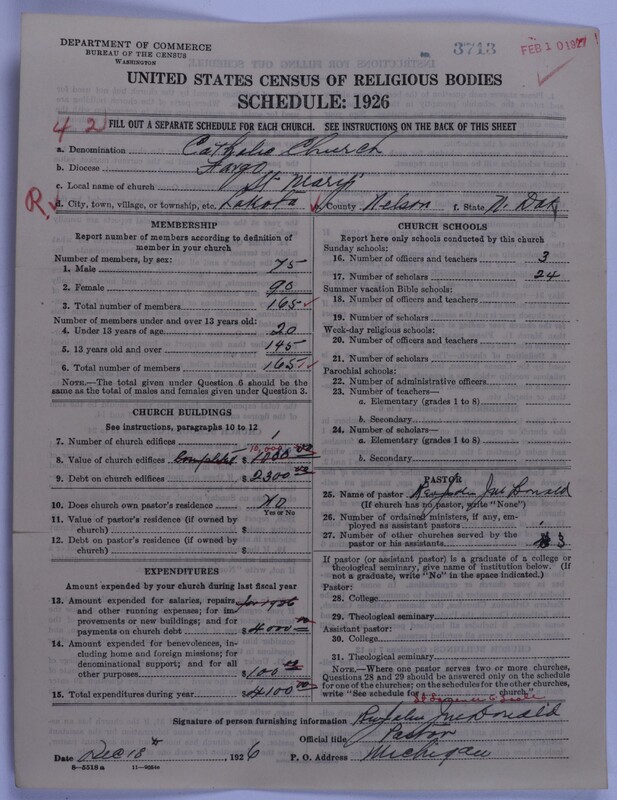 DEPARTMENT OF COMMERCE
BUREAU OF THE CENSUS
WASHINGTON
3713
FEB 10 1927
UNITED STATES CENSUS OF RELIGIOUS BODIES
SCHEDULE: 1926
4 2
FILL OUT A SEPARATE SCHEDULE FOR EACH CHURCH. SEE INSTRUCTIONS ON THE BACK OF THIS SHEET
a. Denomination Catholic Church
b. Diocese Fargo
c. Local name of church St Marys
R
d. City, town, village, or township, etc. Lakota e. County Nelson f. State N. Dak
MEMBERSHIP
Report number of members according to definition of
member in your church
Number of members, by sex:
1. Male 75
2. Female 90
3. Total number of members 165
Number of members under and over 13 years old:
4. Under 13 years of age 20
5. 13 years old and over 145
6. Total number of members 165
NOTE.—The total given under Question 6 should be the
same as the total of males and females given under Question 3.
CHURCH BUILDINGS
See instructions, paragraphs 10 to 12
7. Number of church edifices 1
10,000
8. Value of church edifices $ 1000 00
9. Debt on church edifices $ 2300 00
10. Does church own pastor's residence No
Yes or No
11. Value of pastor's residence (if owned by
church) $
12. Debt on pastor's residence (if owned by
church) $
EXPENDITURES
Amount expended by your church during last fiscal year
13. Amount expended for salaries, repairs for 1926
and other running expenses; for im
provements or new buildings; and for
payments on church debt $ 4000 00
14. Amount expended for benevolences, in-
cluding home and foreign missions; for
denominational support; and for all
other purposes $ 100 00
15. Total expenditures during year $ 4100 00
CHURCH SCHOOLS
Report here only schools conducted by this church
Sunday schools:
16. Number of officers and teachers 3
17. Number of scholars 24
Summer vacation Bible schools:
18. Number of officers and teachers
19. Number of scholars
Week-day religious schools:
20. Number of officers and teachers
21. Number of scholars
Parochial schools:
22. Number of administrative officers
23. Number of teachers—
a. Elementary (grades 1 to 8)
b. Secondary
24. Number of scholars—
a. Elementary (grades 1 to 8)
b. Secondary
PASTOR
25. Name of pastor McDonald
(If church has no pastor, write "None")
26. Number of ordained ministers, if any, em-
ployed as assistant pastors
27. Number of other churches served by the
pastor or his assistants 3
If pastor (or assistant pastor) is a graduate of a college or
theological seminary, give name of institution below. (If
not a graduate, write "No" in the space indicated.)
Pastor:
28. College
29. Theological seminary
Assistant pastor:
30. College
31. Theological seminary
NOTE.—Where one pastor serves two or more churches,
Questions 28 and 29 should be answered only on the schedule
for one of the churches; on the schedules for the other churches,
write "See schedule for church."
Signature of person furnishing information McDonald
Official title Pastor
Date Dec 18, 1926 P. O. Address Michigan
8—5518 a 11—9054